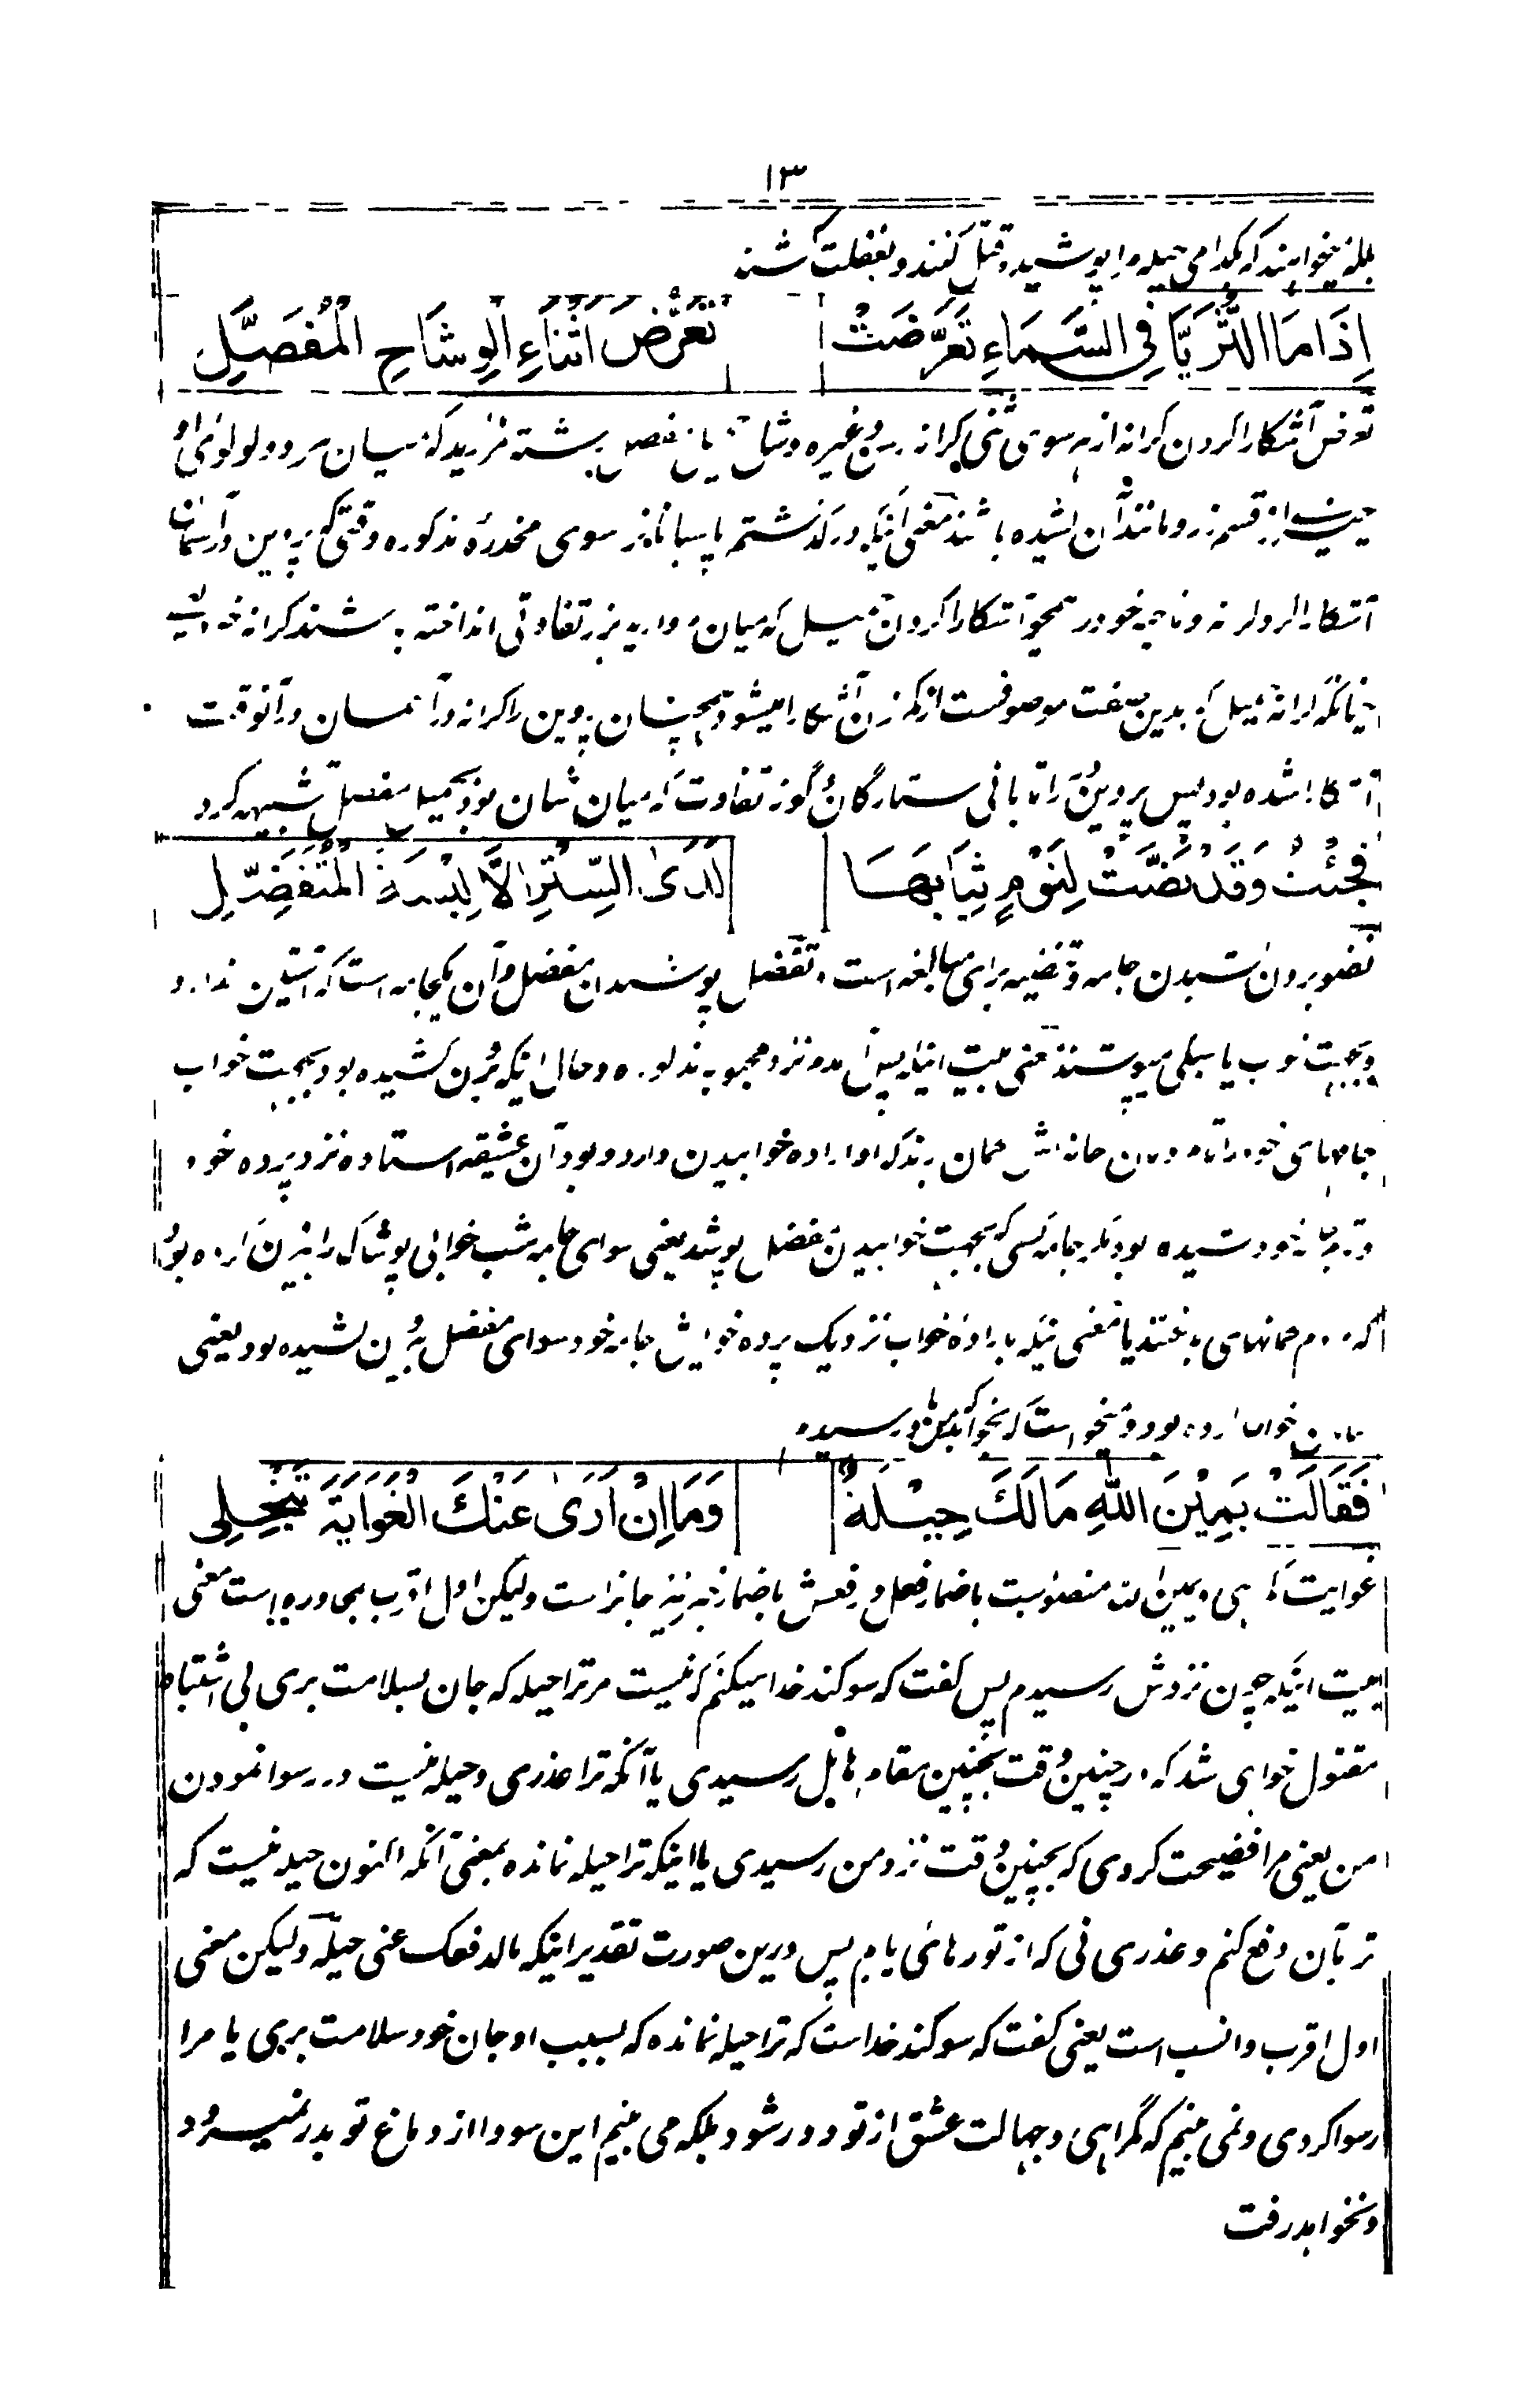 ۱۳
بلکه میخواهند که بکدامی حیله مرا پوشیده قتل کنند و بغفلت کشند
إِذَا مَا الثُّرَيَّا فِي السَّمَاءِ تَعَرَّضَتْ تَعَرُّضَ أَثْنَاءِ الْوِشَاحِ الْمُفَصَّلِ
تعرض آشکارا کردن کرانه از هر سوی ثنی کرانه وشاح مفصل رشته میان هر دو لولوی او
چیزی از قسم زر و مانند آن کشیده باشند معنی اینکه درگذشتم پاسبانان سوی مخدرهٔ مذکوره وقتی که پروین در آسمان
آشکارا کرد کرانه و ناحیه خود را همچو آشکارا کردن حمیل که میان مروارید تفاوتی انداخته باشند کرانه خود
چنانکه کرانه حمیل که بدین صفت موصوفست از آشکارا میشود همچنان پروین را کرانه در آسمان در آنوقت
آشکارا شده بود پس پروین را تابانی ستارگان تفاوت که میان شان بود بحمیل مفصل تشبیه کرد
فَجِئْتُ وَقَدْ نَضَّتْ لِنَوْمٍ ثِيَابَهَا لَدَى السِّتْرِ إِلَّا لِبْسَةَ الْمُتَفَضِّلِ
نضو بیرون کشیدن جامه و تنضیه برای مبالغه است و تفضل پوشیدن مفضل و آن یکجامه است که آستین ندارد
و بجهت خواب یا سبکی میپوشند معنی بیت اینکه پس آمدم نزد محبوبه مذکوره و حال اینکه بیرون کشیده بود بجهت خواب
جامهای خود را تا مردمان خانه اش گمان برند که او اراده خوابیدن دارد و بود آن عشیقه استاده نزد پرده خود
خود کشیده بود مگر جامه کسی که بجهت خوابیدن مفضل پوشد یعنی سوای جامه شب خوابی پوشاک را بیرون کرده بود
که مردم یا معنی اینکه باراده خواب نزدیک پرده خویش جامه خود سوای مفضل بیرون کشیده بود یعنی
خواب کرده بود و میخواست که بخوابد من رسیدم
فَقَالَتْ يَمِيْنَ اللهِ مَا لَكَ حِيْلَةٌ وَمَا إِنْ أَرَىٰ عَنْكَ الْغَوَايَةَ تَنْجَلِي
غوایت گمراهی و یمین الله منصوبست باضمار فعل و رفعش باضمار خبر نیز جائز است ولیکن اول اقرب بمحاوره است معنی
بیت اینکه چون نزدش رسیدم پس گفت که سوگند خدا میکنم که نیست مر ترا حیله که جان بسلامت بری بی اشتباه
مقتول خواهی شد که در چنین وقت بچنین مقام هائل رسیدی یا آنکه ترا عذری و حیله نیست در رسوا نمودن
من یعنی مرا فضیحت کردی که بچنین وقت نزد من رسیدی یا اینکه ترا حیله نمانده بمعنی آنکه اکنون حیله نیست که
ترا بآن دفع کنم و عذری نی که از تو رهائی یابم پس درین صورت تقدیر اینکه ما لدفعک عنی حیلة ولیکن معنی
اول اقرب و انسب است یعنی گفت که سوگند خداست که ترا حیله نمانده که بسبب او جان خود سلامت بری یا مرا
رسوا کردی و نمی بینم که گمراهی و جهالت عشق از تو دور شود بلکه می بینم این سودا از دماغ تو بدر نمیرود
و نخواهد رفت